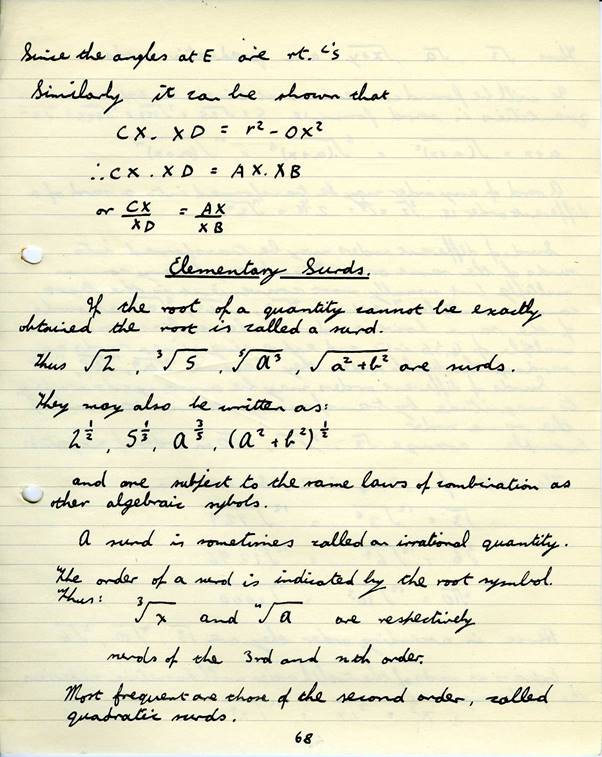 Since the angles at E are rt. ∠'s
Similarly it can be shown that
CX. XD = r² - OX²
∴ CX . XD = AX. XB
or CX/XD = AX/XB
Elementary Surds.
If the root of a quantity cannot be exactly
obtained the root is called a surd.
Thus √2 , ³√5 , ⁵√a³ , √a² + b² are surds.
They may also be written as:
2^½ , 5^⅓ , a^⅗ , (a² + b²)^½
and are subject to the same laws of combination as
other algebraic sybols.
A surd is sometimes called an irrational quantity.
The order of a surd is indicated by the root symbol.
Thus:
³√x and ⁿ√a are respectively
surds of the 3rd and nth order.
Most frequent are those of the second order, called
quadratic surds.
68